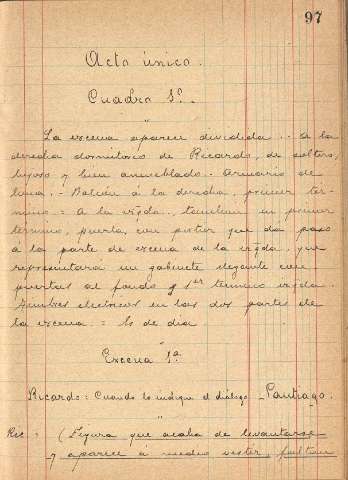 97
Acto único.
Cuadro 1º.
"
La escena aparece dividida.. A la
derecha dormitorio de Ricardo, de soltero,
lujoso y bien amueblado.- Armario de
luna.- Balcón á la derecha, primer tér-
mino = A la izqda, tambien en primer
término, puerta, con portier que da paso
á la parte de escena de la izqda, que
representará un gabinete elegante con
puertas al fondo y 1er termino izqda.
Timbres eléctricos en las dos partes de
la escena = Es de dia
"
Escena 1ª
Ricardo = Cuando lo indique el diálogo - Santiago.
"
Ric = (Figura que acaba de levantarse
y aparece á medio vestir,